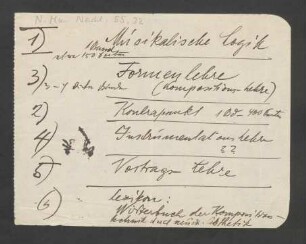 N. Mus. Nachl. 55, 32
1) Musikalische Logik
1 Band
3) Formenlehre
(Kompositionslehre)
2) Kontrapunkt 1 Bd. 400 Seiten
4) Instrumentationslehre
??
5) Vortragslehre
6) Lexikon:
Wörterbuch der Komposition-
technik und musik. Ästhetik